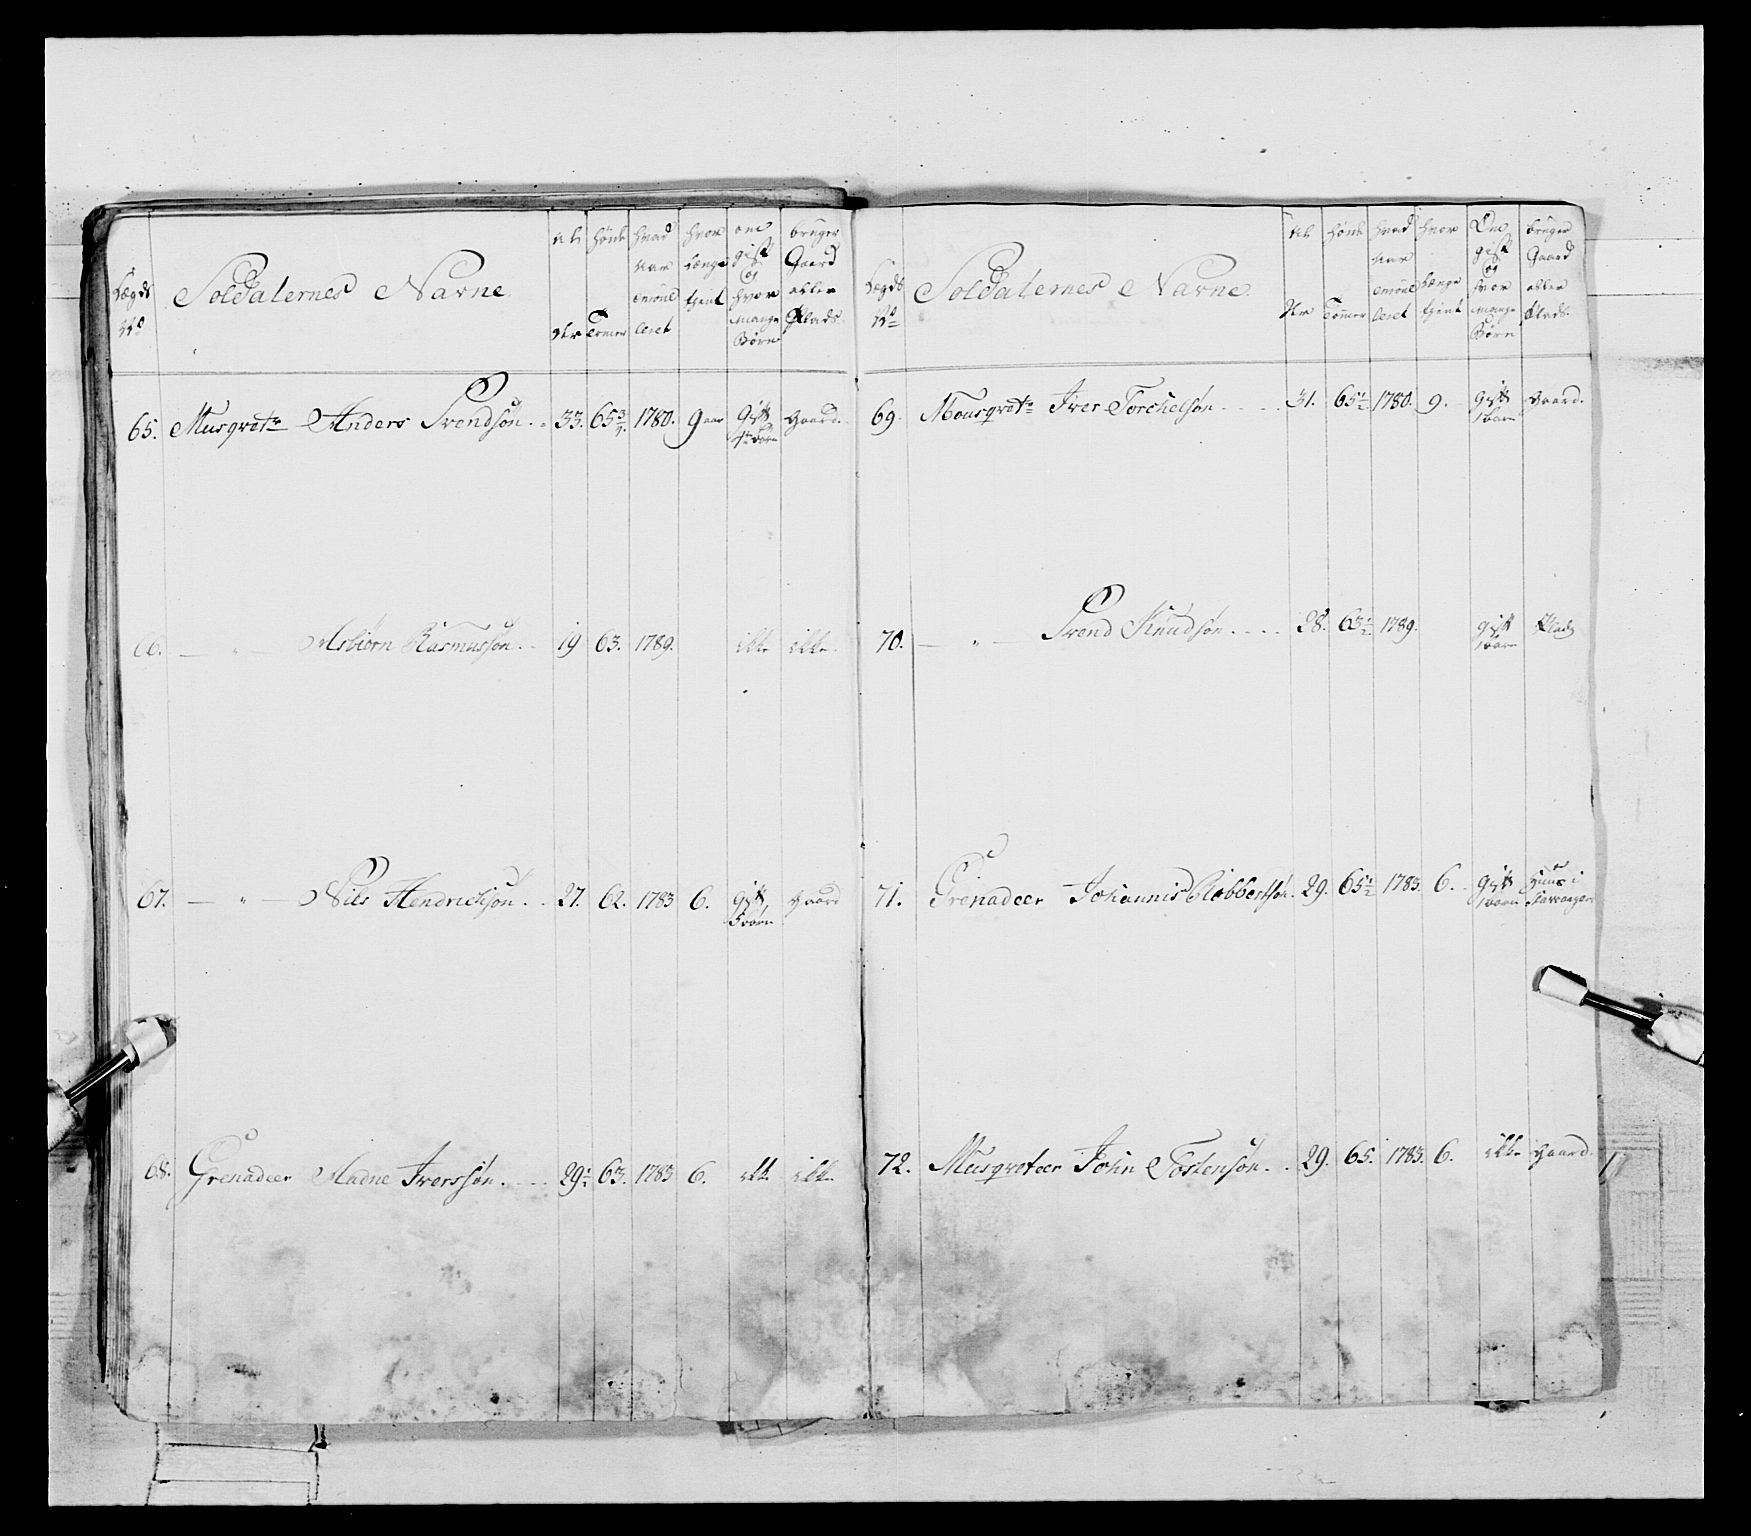 Lægds No
Soldaternes Navne
Alder
Høide Tommer
hvad Aar enroulleret
hvor længe tjent
om gift og hvor mange Børn
bruger Gaard eller Plads
65. Musqvetr Anders Svendsøn 33. 65 3/4 1780. 9 aar Gift 4 Børn Gaard
66. — " — Asbiørn Rasmussøn 19 63. 1789. ikke ikke
67. — " — Nils Hendrichsøn 27. 62. 1783 6. gift 5 børn gaard
68. Grenadeer Aadne Iverssøn 29 1/2 63. 1783 6. ikke ikke
Lægds No
Soldaternes Navne
Alder
Høide Tommer
hvad Aar enroulleret
hvor længe tjent
Om gift og hvor mange Børn
bruger Gaard eller Plads
69. Mousqvetr Iver Torchelsøn 31. 65 1/2 1780. 9. Gift 1 barn gaard.
70. — " — Svend Knudsøn 28. 63 1/2 1789. gift 1 barn Plads
71. Grenadeer Johannis Robbertsøn 29. 65 1/2 1783. 6. gift 1 barn Huus i Stavanger
72. Musqveteer John Tostensøn 29. 65. 1783. 6. ikke gaard.